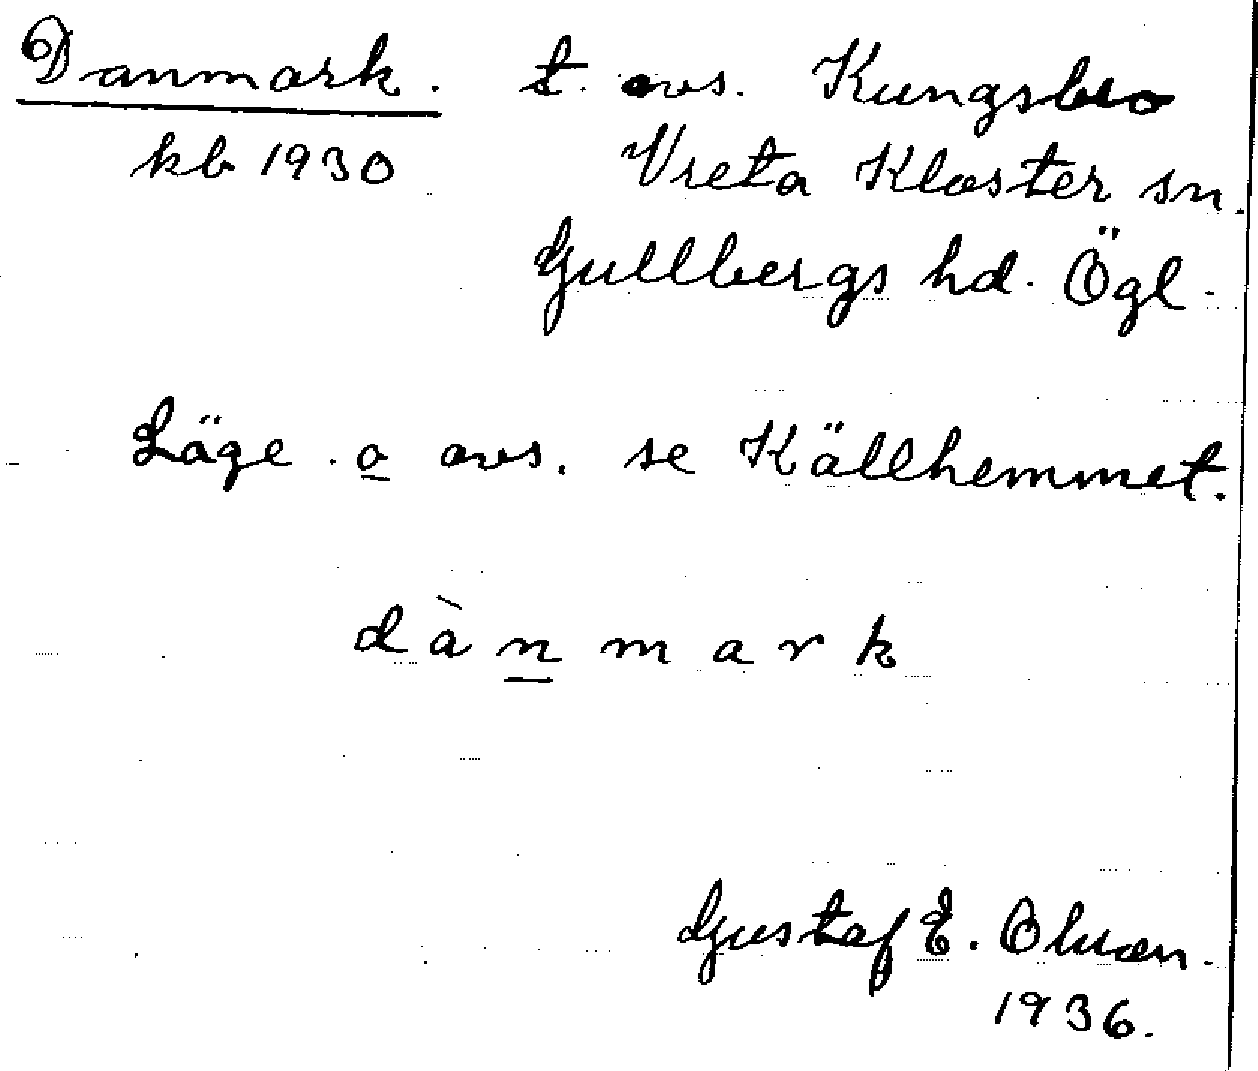 Danmark. t. avs. Kungsbro
kb 1930 Vreta Kloster sn.
Gullbergs hd. Ögl.
Läge o avs. se Källhemmet.
dànmark
Gustaf E. Olson.
1936.